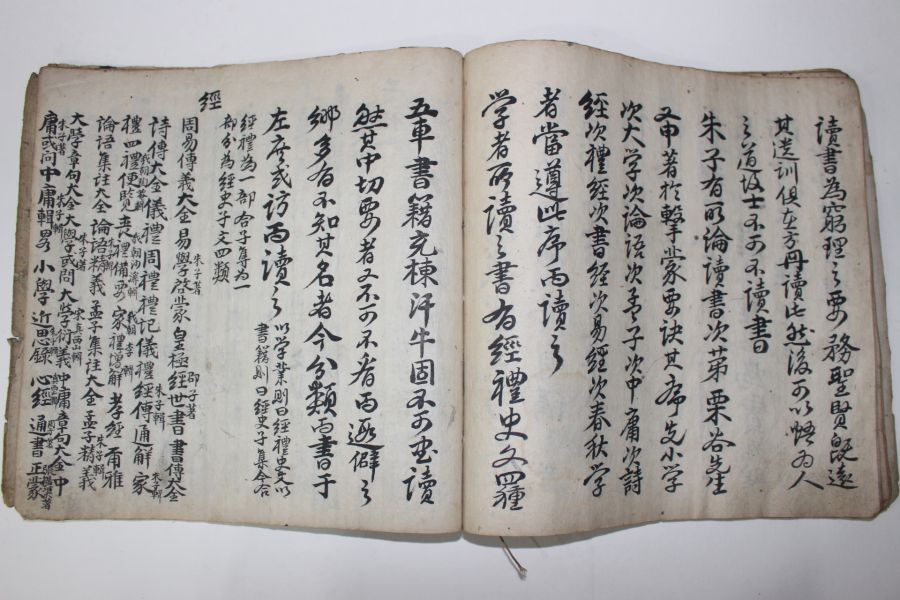 讀書爲窮理之要務聖賢旣遠
其遺訓俱在方冊讀此然後可以悟爲人
之道故士不可不讀書
朱子有所論讀書次第栗谷先生
又申著於擊蒙要訣其序先小學
次大学次論語次孟子次中庸次詩
經次禮經次書經次易經次春秋学
者當遵此序而讀之
学者所讀之書有經禮史文四種
五車書籍充棟汗牛固不可盡讀
然其中切要者又不可不看而遐僻之
鄕多有不知其名者今分類而書于
左庶或訪而讀之 以学業則曰經禮史文以
書籍則曰經史子集今合
經禮爲一部各子集爲一
部分爲經史子文四類
經
周易傳義大全 易學啓蒙 朱子著 皇極經世書 邵子著 書傳大全
詩傳大全 儀禮 周禮 禮記 儀禮經傳通解 朱子輯 家
禮 四禮便覽 喪禮備要 家禮增解 孝經 爾雅
論語集註大全 論語精義 孟子集註大全 孟子精義
大学章句大全 大學或問 大学衍義 中庸章句大全 中
庸或問 中庸輯畧 小學 近思錄 心經 通書 正蒙